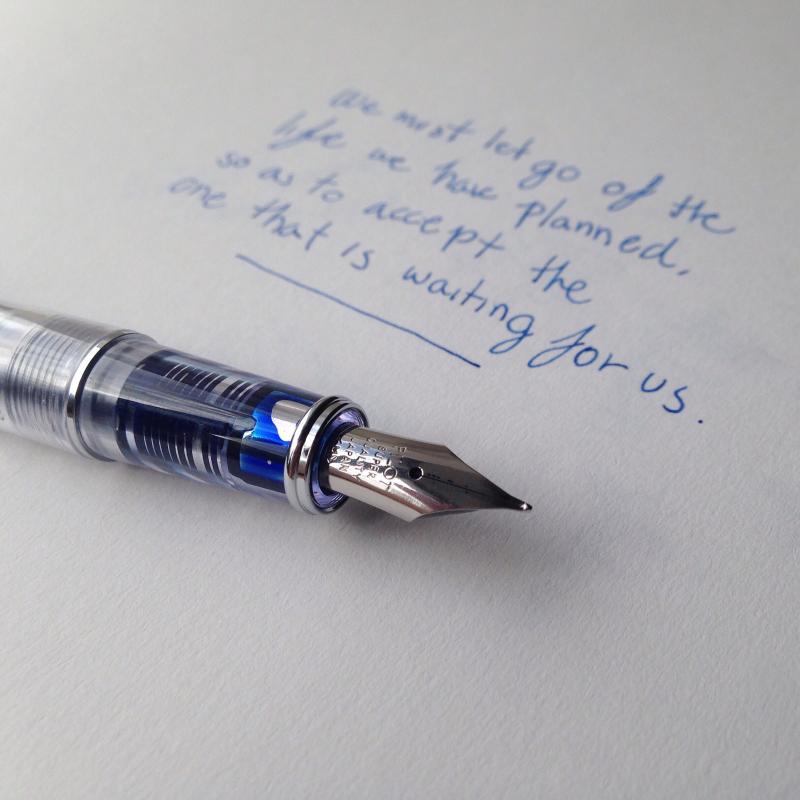 We must let go of the
life we have planned,
so as to accept the
one that is waiting for us.
PILOT
SUPER
QUALITY
JAPAN